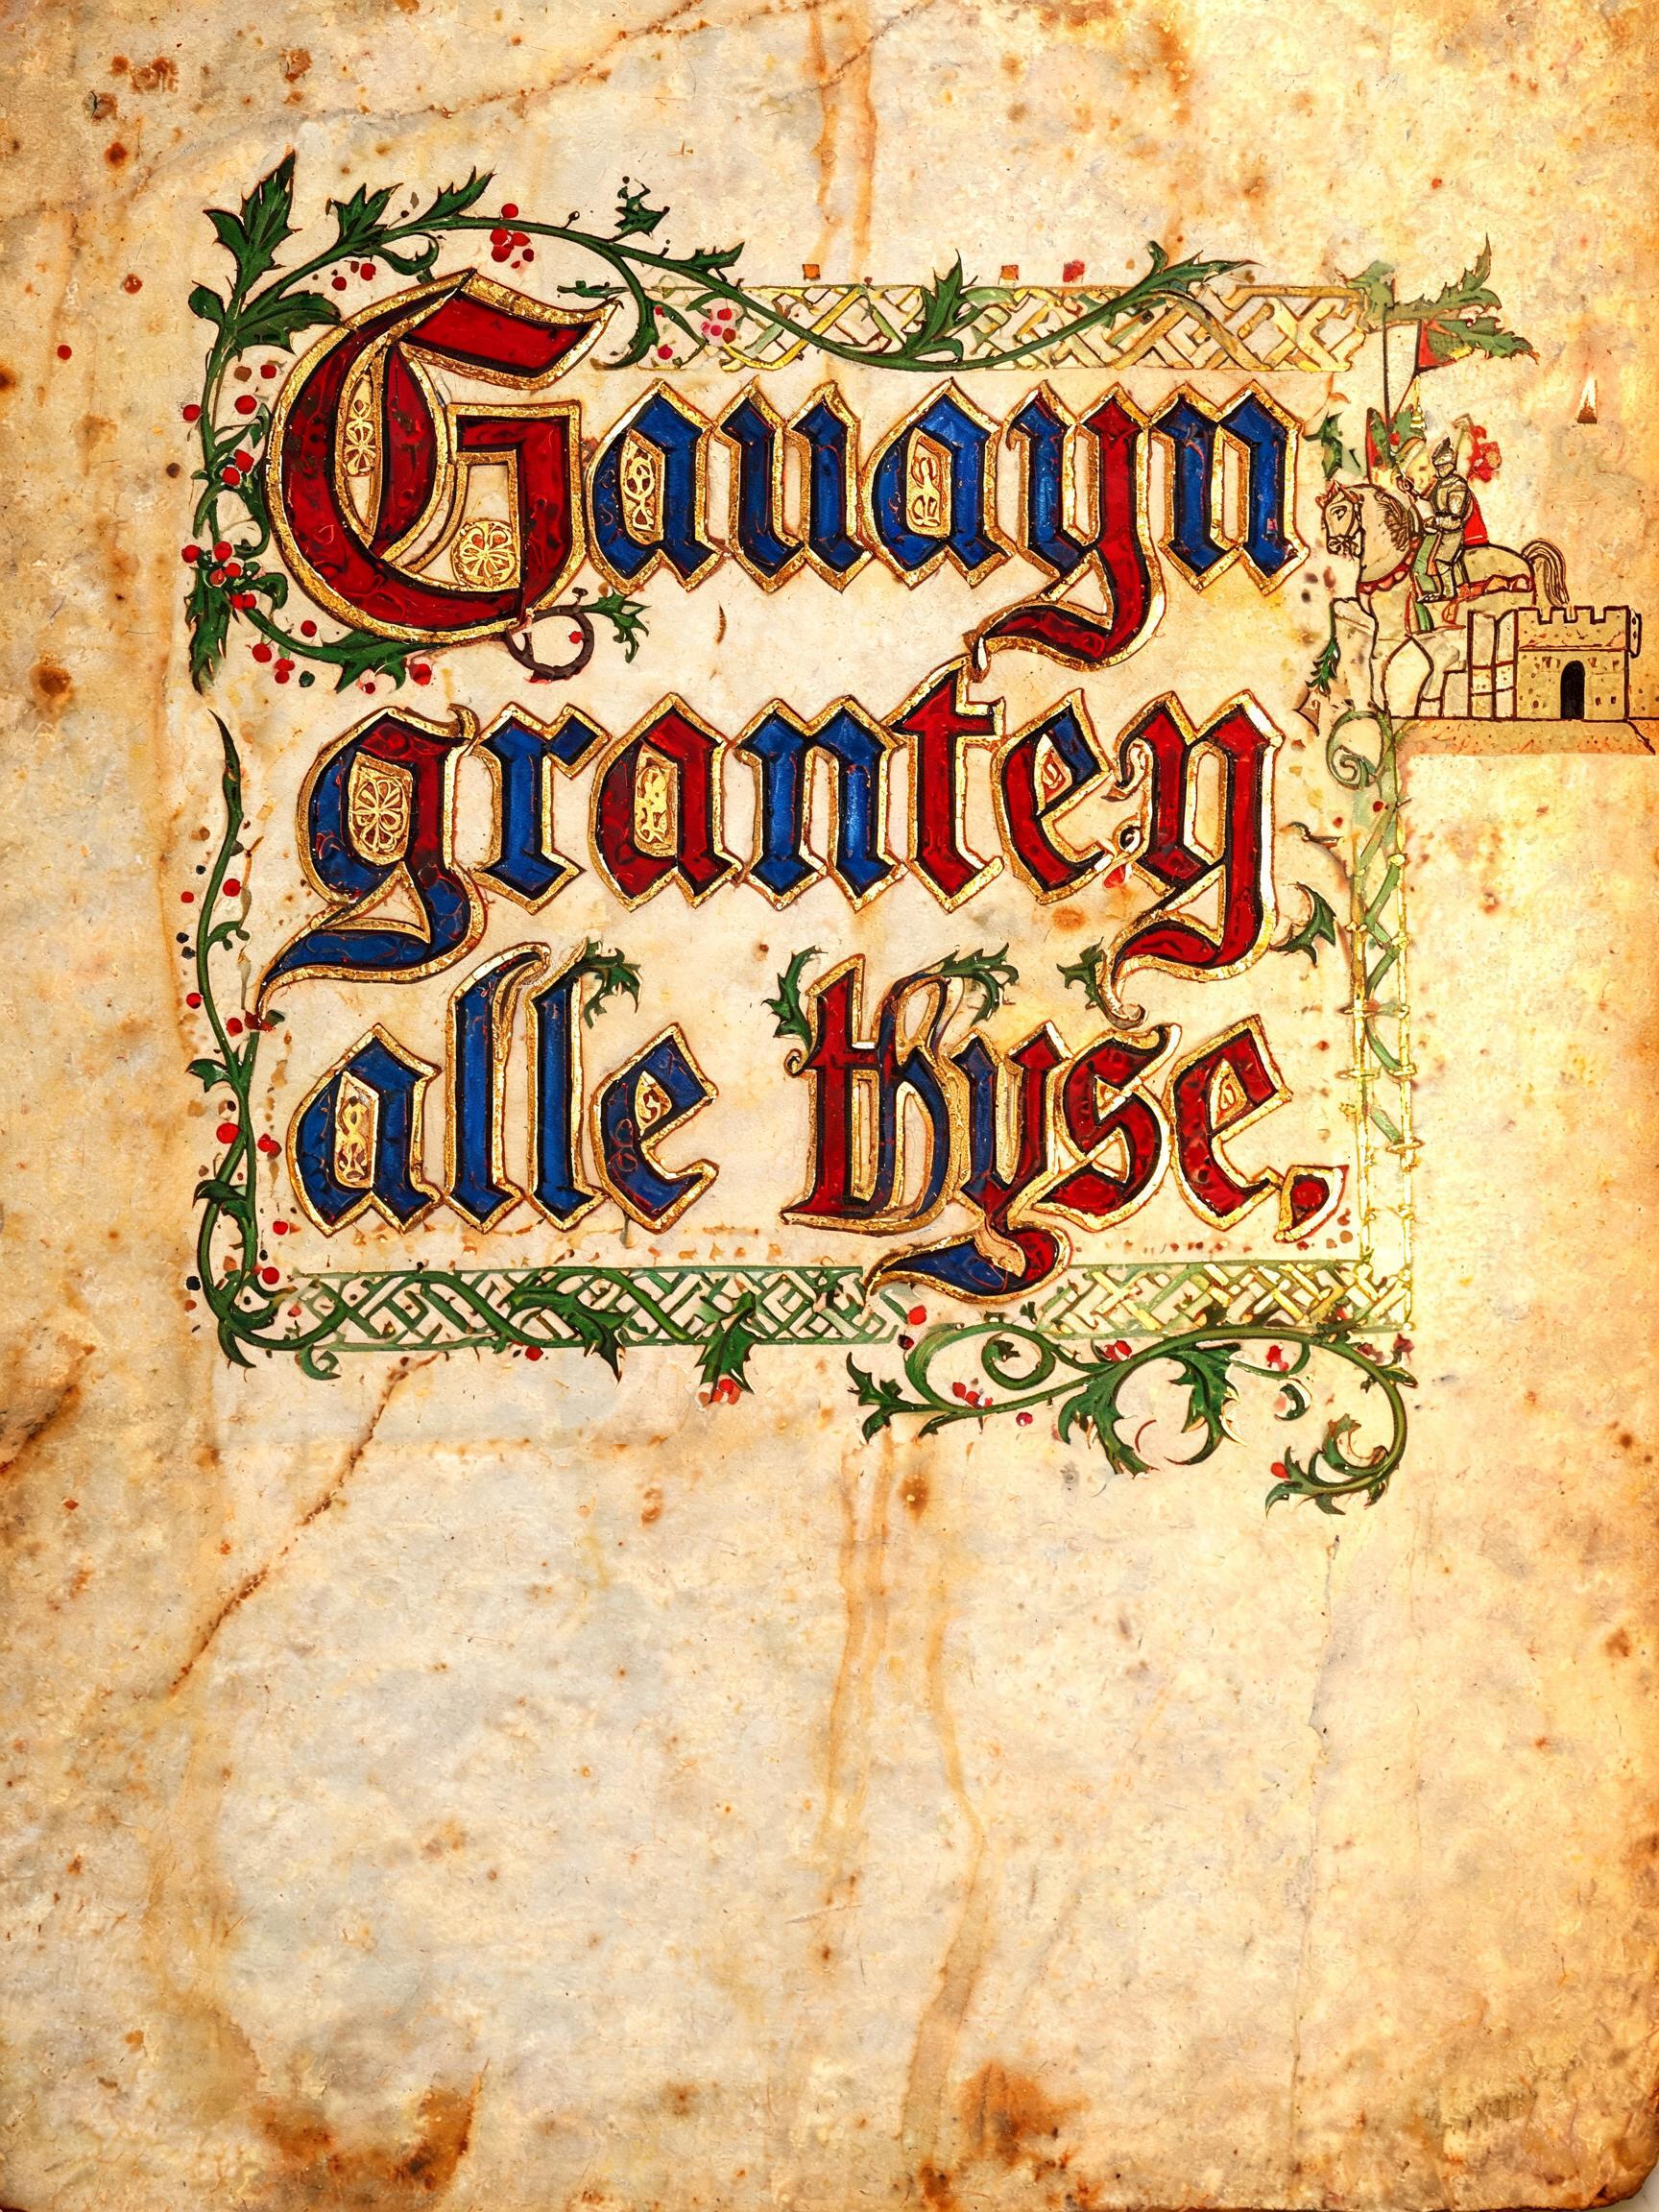 Gauayn
grantey
alle thyse.